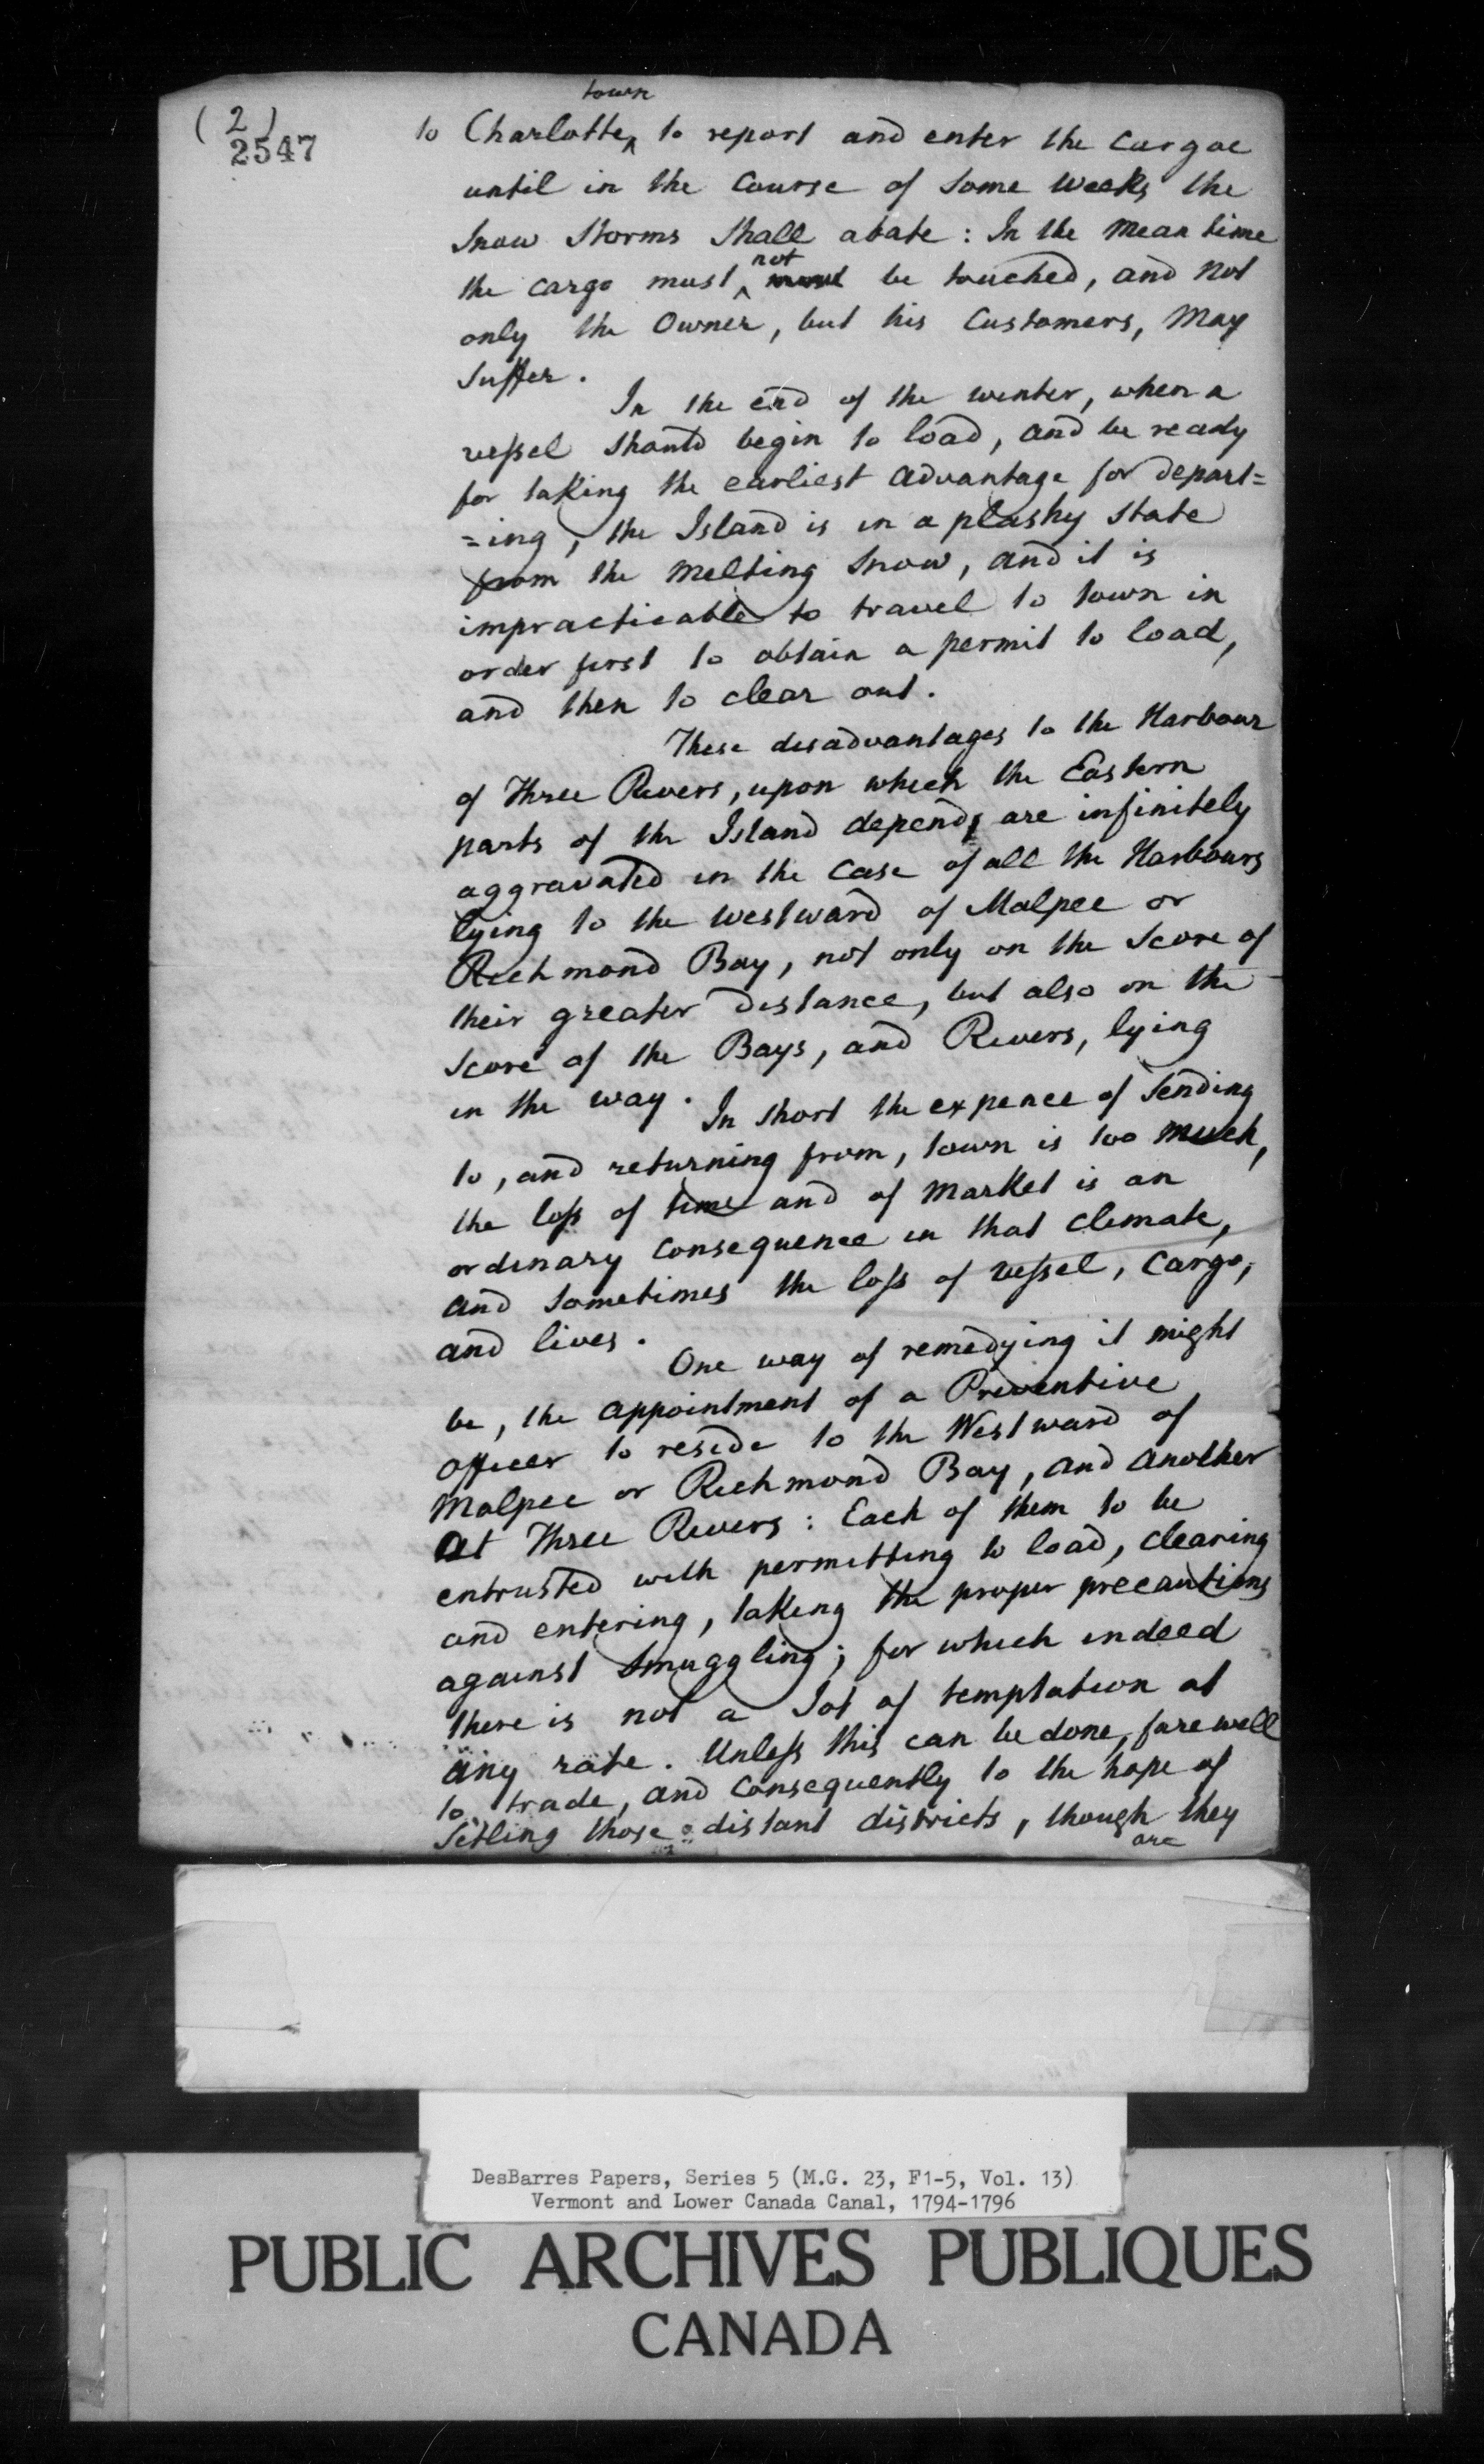 ( 2 )
2547
town
to Charlotte^ to report and enter the Cargoe
until in the Course of some Weeks the
Snow Storms Shall abate : In the Mean time
not
the cargo must ^ must be touched, and Not
only the Owner, but his Customers, May
Suffer.
In the end of the winter, when a
vessel should begin to load, and be ready
for taking the earliest Advantage for depart=
=ing, the Island is in a plashy State
from the Melting Snow, and it is
impracticable to travel to town in
order first to obtain a permit to load,
and then to clear out.
These disadvantages to the Harbour
of Three Rivers, upon which the Eastern
parts of the Island depend, are infinitely
aggravated in the Case of all the Harbours
lying to the Westward of Malpee or
Richmond Bay, not only on the Score of
their greater distance, but also on the
Score of the Bays, and Rivers, lying
in the way.
In short the expence of Sending
to, and returning from, town is too much,
the loss of time and of Market is an
ordinary Consequence in that Climate,
and Sometimes the loss of vessel, Cargo,
and lives.
One way of remedying it might
be, the appointment of a Preventive
Officer to reside to the Westward of
Malpee or Richmond Bay, and another
at Three Rivers : Each of them to be
entrusted with permitting to load, clearing
and entering, taking the proper precautions
against Smuggling; for which indeed
there is not a Jot of temptation at
any rate. Unless this can be done, farewell
to trade, and Consequently to the hope of
Setling those distant districts, though they
are
DesBarres Papers, Series 5 (M.G. 23, F1-5, Vol. 13)
Vermont and Lower Canada Canal, 1794-1796
PUBLIC ARCHIVES PUBLIQUES
CANADA